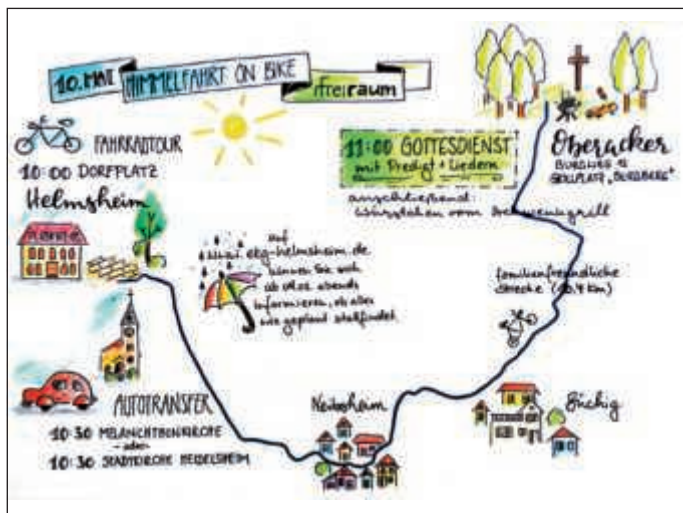 10. MAI HIMMELFAHRT ON BIKE
freiraum
FAHRRADTOUR
10:00 DORFPLATZ
Helmsheim
11:00 GOTTESDIENST
mit Predigt + Liedern
anschließend:
Würstchen vom Schwenkgrill
Oberacker
GRILLPLATZ „BURGBERG“
Auf
www.ekg-helmsheim.de
können Sie sich
ab abends
informieren, ob alles
wie geplant stattfindet.
familienfreundliche
Strecke
AUTOTRANSFER
10:30 MELANCHTHONKIRCHE
-oder-
10:30 STADTKIRCHE HEIDELSHEIM
Neibsheim
Büchig